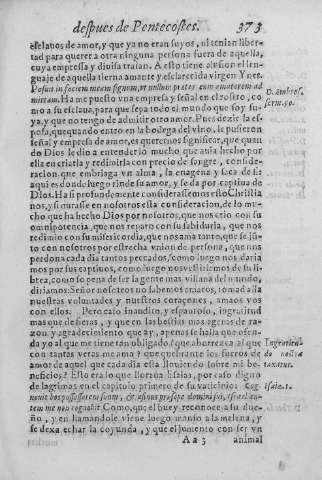 despues de Pentecostes. 373
esclauos de amor, y que ya no eran suyos, ni tenian liber-
tad para querer a otra ninguna persona fuera de aquella,
cuya empressa y diuisa traian. A esto tiene alusion el len
guaje de aquella tierna amante y esclarecida virgen Ynes.
Posuit in faciem meam signum, vt nullum præter eum amatorem ad
mittam. Ha me puesto vna empresa y señal en el rostro, co
mo a su esclaua, para que sepa todo el mundo que soy su-
ya, y que no tengo de admitir otro amor. Pues dezir la es-
posa, que quando entro en la bodega del vino, le pusieron
señal y empresa de amor, es querernos significar, que quan
do Dios le dio a entender lo mucho que auia hecho por
ella en criarla y redimirla con precio de sangre, conside-
racion que embriaga vn alma, la enagena y saca de si:
aqui es donde luego rinde su amor, y se da por captiua de
Dios. Ha si profundamente considerassemos esto Christia
nos, y si durasse en nosotros esta consideracion, de lo mu-
cho que ha hecho Dios por nosotros, que nos crio con su
omnipotencia, que nos reparo con su sabiduria, que nos
redimio con su misericordia, que nos ama tanto, que se jū
to con nosotros por estrecha vnion de persona, que nos
perdona cada dia tantos peccados, como luego nos daria
mos por sus captiuos, como luego nos vestiriamos de su li
brea, como so pena de ser la gente mas villana del mundo,
diriamos: Señor nosotros no sabemos amaros, tomad alla
nuestras voluntades y nuestros coraçones, amaos vos
con ellos. Pero caso inaudito, y espantoso, ingratitud
mas que de fieras, y que en las bestias mas agenas de ra-
zon y agradecimiento que ay, apenas se halla que ofen-
da yo al que me tiene tan obligado? que aborrezca al que
con tantas veras me ama? que quebrante los fueros de
amor de aquel que cada dia esta llouiendo sobre mi be-
neficios? Esto era lo que lloraua Isaias, por caso digno
de lagrimas en el capitulo primero de su vaticinio: Cog
nouit bos possessorem suum, & asinus præsepe domini sui, Israel au-
tem me non cognouit. Como, que el buey reconoce a su due-
ño, y en llamandole viene luego manso a la melena, y
se dexa echar la coyunda, y que el jumento con ser vn
Aa 3 animal
D. Ambros.
serm. 90.
Ingratitud
Isaie. 1.